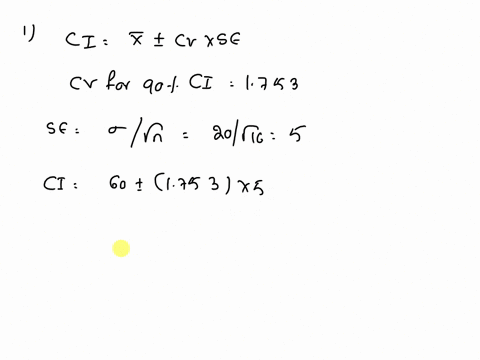 1) CI = x̄ ± Cv x SE
Cv for 90% CI = 1.753
SE = σ/√n = 20/√16 = 5
CI = 60 ± (1.753) x 5